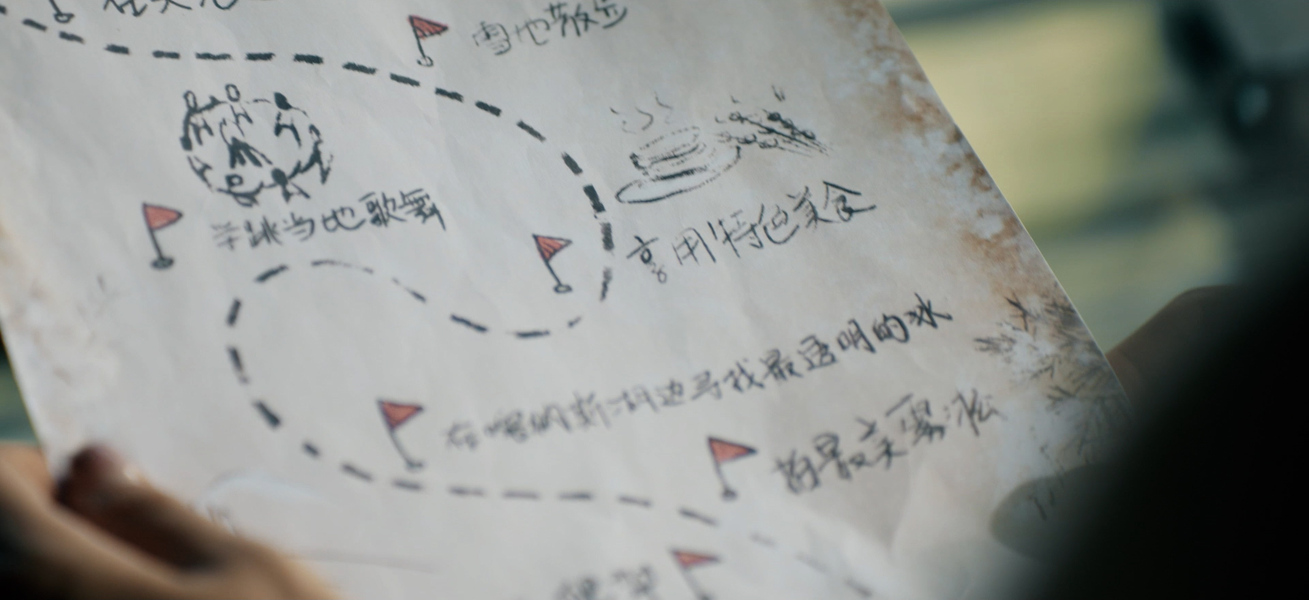 雪地散步
学跳当地歌舞
享用特色美食
在喀纳斯湖边寻找最透明的冰
最美雾凇